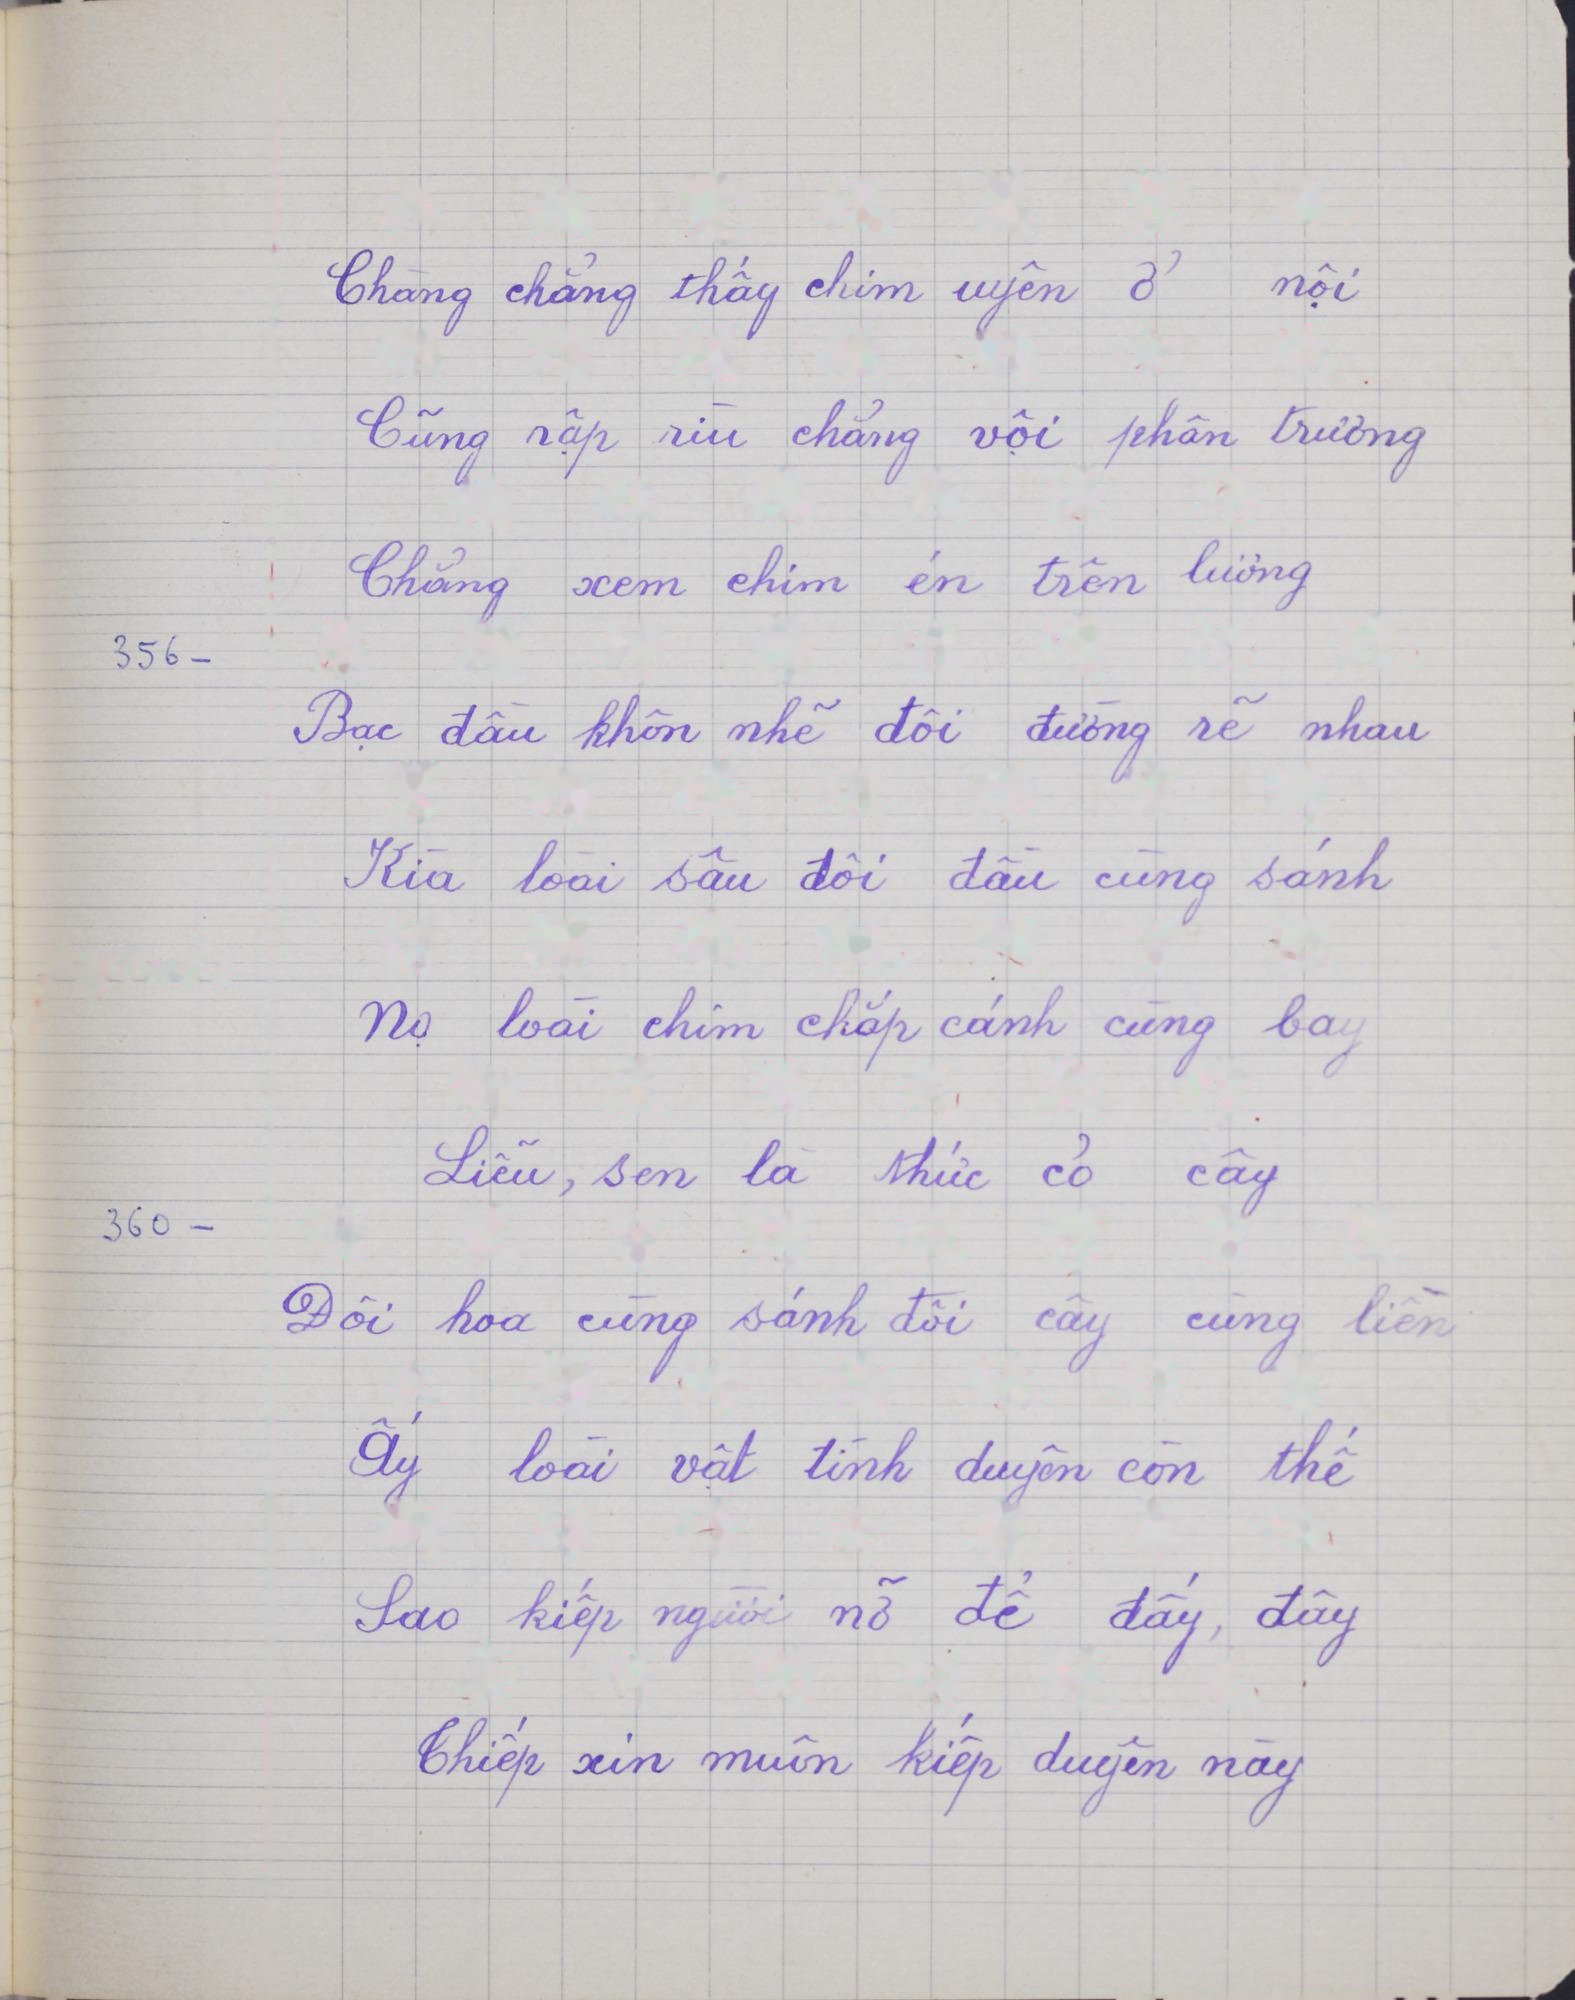 Chàng chẳng thấy chim uyên ở nội
Cũng rập rìu chẳng vội phân trương
Chẳng xem chim én trên lương
356 -
Bạc đầu không nhẽ đôi đường rẽ nhau
Kìa loài sâu đôi đầu cùng sánh
Nọ loài chim chắp cánh cùng bay
Liễu, sen là thức cỏ cây
360 -
Đôi hoa cùng sánh đôi cây cùng liền
Ấy loài vật tình duyên còn thế
Sao kiếp người nỡ để đấy, đây
Thiếp xin muôn kiếp duyên này